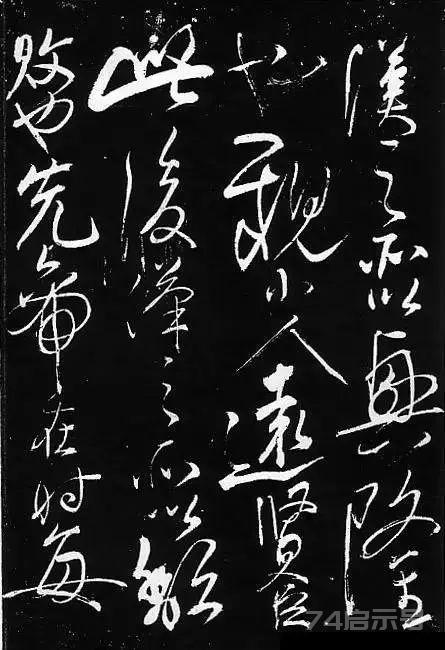 漢之所以興隆
也親小人遠賢臣
此後漢之所以傾
敗也先帝在時每
74启示号